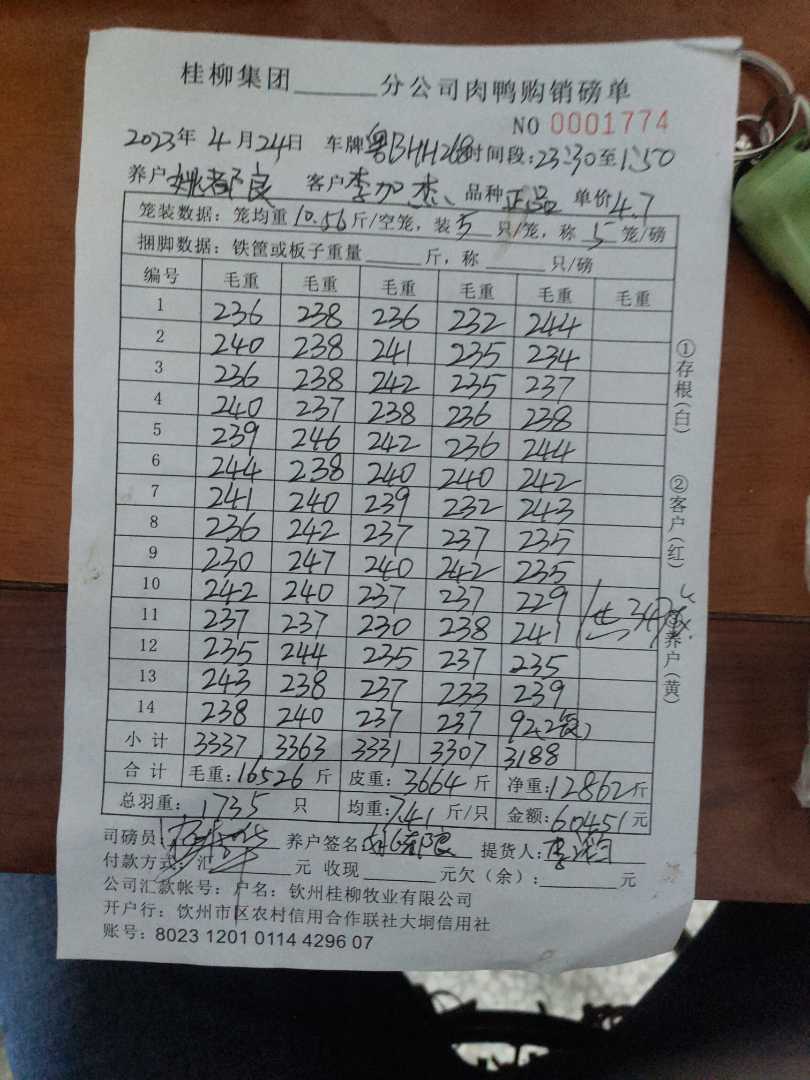 桂柳集团______分公司肉鸭购销磅单
NO 0001774
2023年 4月24日 车牌粤BHH268时间段:23:30至1:50
养户姚都良 客户李加杰 品种正品 单价4.7
笼装数据:笼均重10.56斤/空笼,装5只/笼,称5笼/磅
捆脚数据:铁筐或板子重量____斤,称____只/磅
编号 毛重 毛重 毛重 毛重 毛重 毛重
1 236 238 236 232 244
2 240 238 241 235 234
3 236 238 242 235 237
4 240 237 238 236 238
5 239 246 242 236 244
6 244 238 240 240 242
7 241 240 239 232 243
8 236 242 237 237 235
9 230 247 240 242 235
10 242 240 237 237 229
11 237 237 230 238 241
共347
12 235 244 235 237 235
13 243 238 237 233 239
14 238 240 237 237 92(2笼)
小计 3337 3363 3331 3307 3188
合计 毛重:16526斤 皮重:3664斤 净重:12862斤
总羽重:1735只 均重:7.41斤/只 金额:60451元
司磅员: 养户签名: 提货人:
付款方式:汇____元 收现____元欠(余):____元
公司汇款帐号:户名:钦州桂柳牧业有限公司
开户行:饮州市区农村信用合作联社大垌信用社
账号:8023 1201 0114 4296 07
①存根(白)
②客户(红)
③养户(黄)